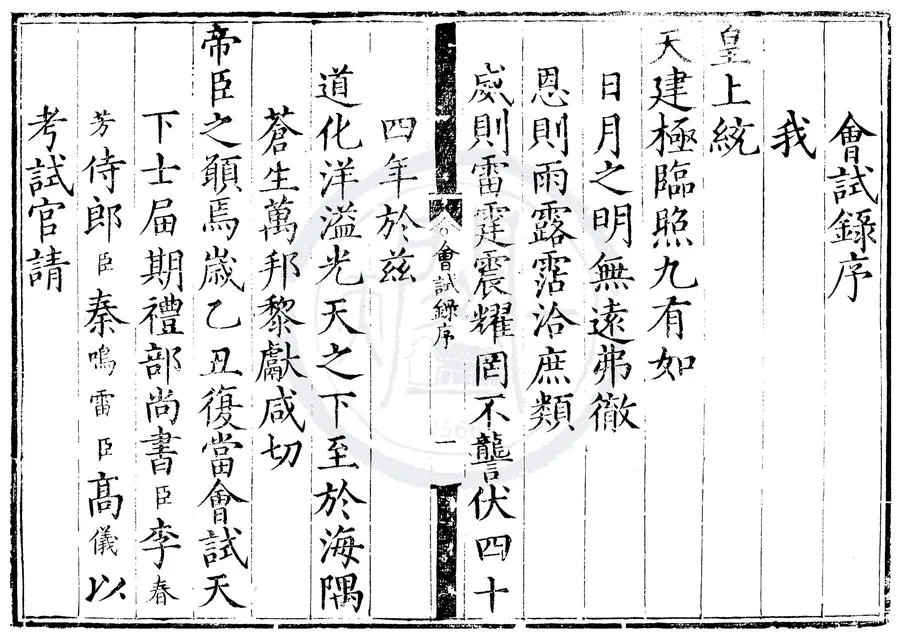 會試錄序
我
皇上統
天建極臨照九有如
日月之明無遠弗徹
恩則雨露霑洽庶類
威則雷霆震耀罔不讋伏四十
會試錄序
一
四年於兹
道化洋溢光天之下至於海隅
蒼生萬邦黎獻咸切
帝臣之願焉歲乙丑復當會試天
下士届期禮部尚書臣李春
芳侍郎臣秦鳴雷臣高儀以
考試官請